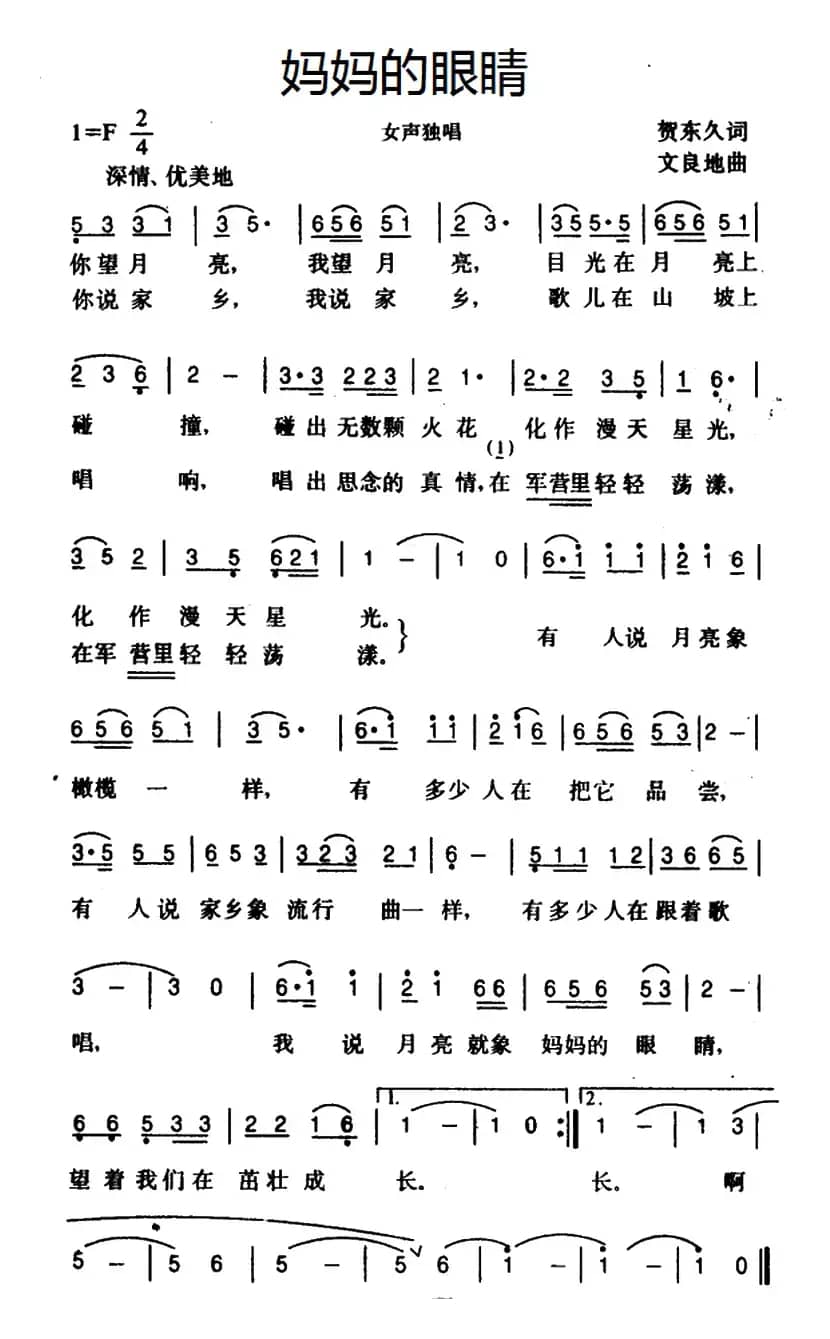 妈妈的眼睛
1=F 2/4 女声独唱 贺东久词
深情、优美地 文良地曲
5 3 3 1 | 3 5· | 6 5 6 5 1 | 2 3· | 3 5 5·5 | 6 5 6 5 1 |
你望月 亮, 我望 月 亮, 目光在月 亮上
你说家 乡, 我说 家 乡, 歌儿在山 坡上
2 3 6 | 2 - | 3·3 2 2 3 | 2 1· | 2·2 3 5 | 1 6· |
碰 撞, 碰出无数颗 火花 化作 漫天 星光,
(1)
唱 响, 唱出思念的 真情,在 军营里轻轻 荡漾,
3 5 2 | 3 5 6 2 1 | 1 - | 1 0 | 6·i i i | 2 i 6 |
化 作 漫 天 星 光。 有 人说 月亮象
在军 营里轻 轻荡 漾。
6 5 6 5 1 | 3 5· | 6·i i i | 2 i 6 | 6 5 6 5 3 | 2 - |
橄榄 一 样, 有 多少人在 把它 品 尝,
3·5 5 5 | 6 5 3 | 3 2 3 2 1 | 6 - | 5 1 1 1 2 | 3 6 6 5 |
有 人说 家乡象 流行 曲一 样, 有多少人在跟着歌
3 - | 3 0 | 6·i i | 2 i 6 6 | 6 5 6 5 3 | 2 - |
唱, 我 说 月 亮就象 妈妈的 眼 睛,
6 6 5 3 3 | 2 2 1 6 | 1. 1 - | 1 0 :| 2. 1 - | 1 3 |
望着我们在 茁壮成 长。 长。 啊
5 - | 5 6 | 5 - | 5 ∨ 6 | i - | i - | i - | i 0 ‖